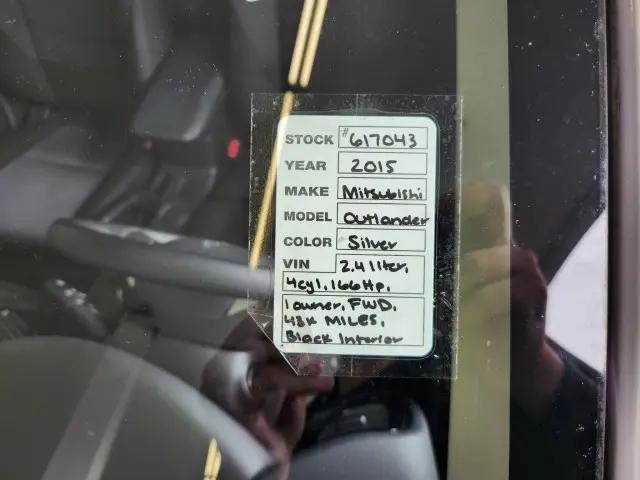 STOCK #617043
YEAR 2015
MAKE Mitsubishi
MODEL Outlander
COLOR Silver
VIN 2.4 liter,
4cyl, 166 Hp,
1 owner, FWD,
43K MILES,
Black Interior